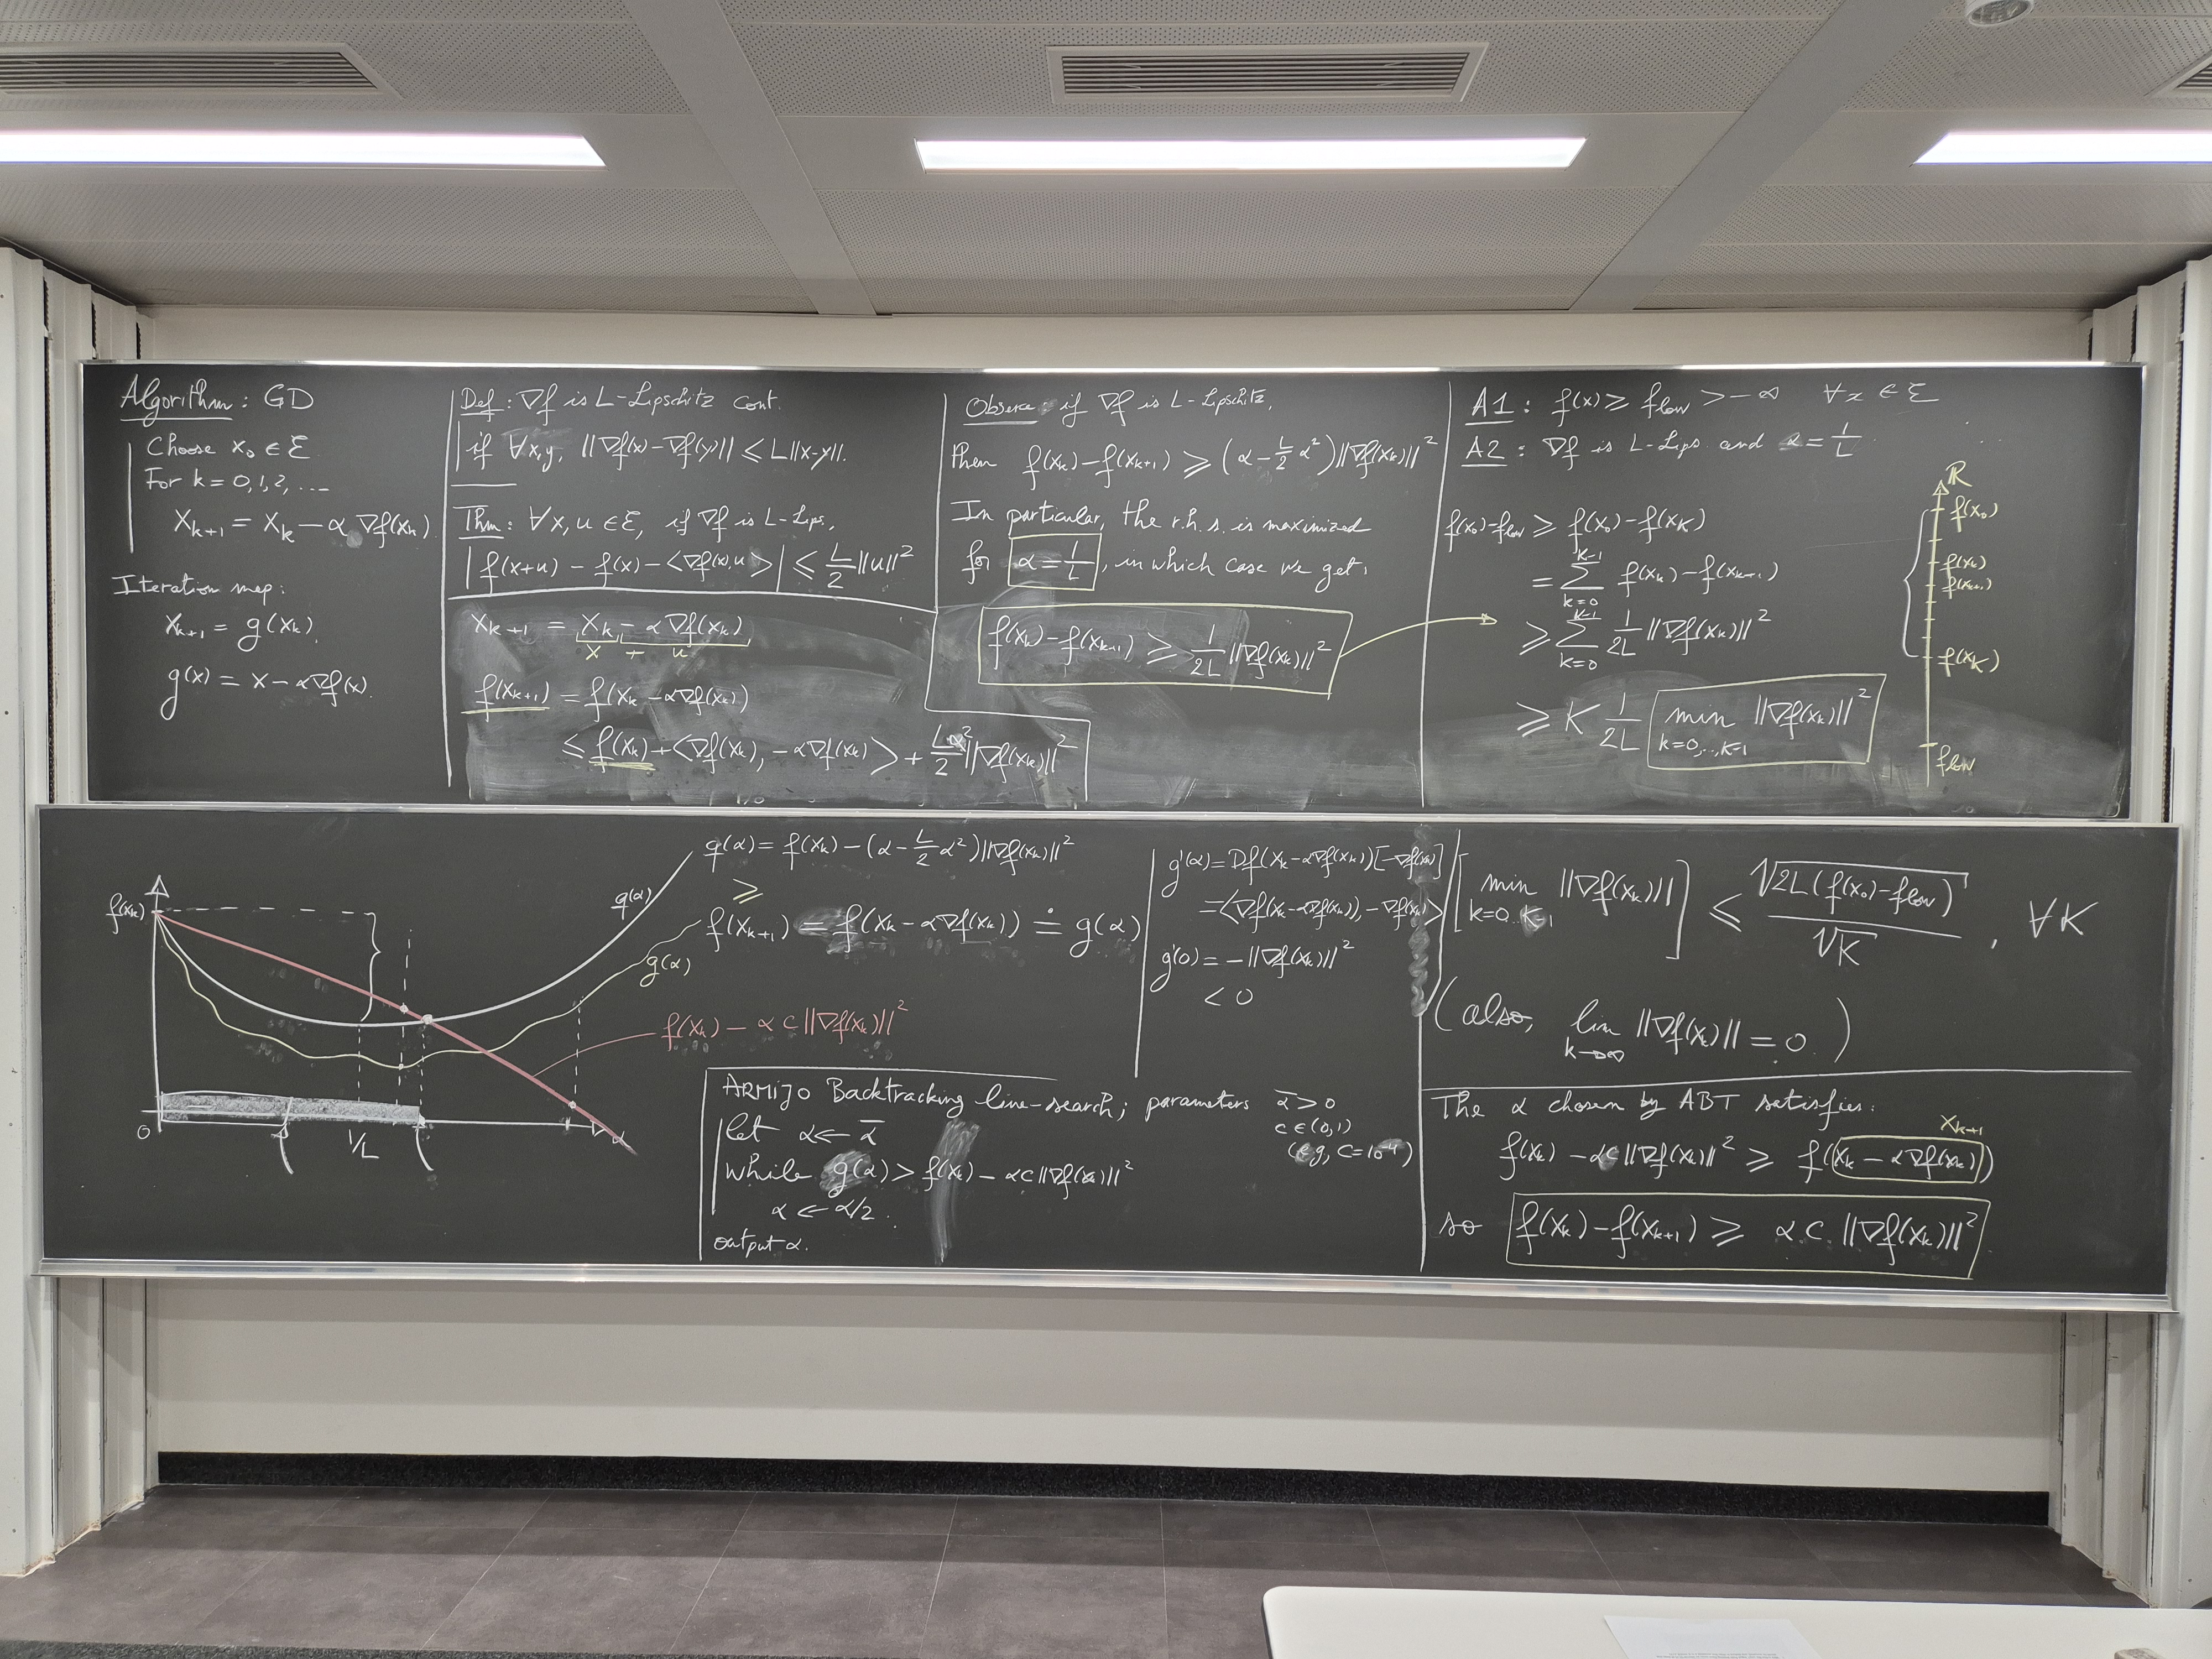 Algorithm: GD
Choose x₀ ∈ ℰ
For k = 0, 1, 2, ....
x_{k+1} = x_k − α ∇f(x_k)
Iteration map:
x_{k+1} = g(x_k)
g(x) = x − α∇f(x).
Def: ∇f is L-Lipschitz cont.
if ∀x,y, ||∇f(x) − ∇f(y)|| ≤ L||x−y||.
Thm: ∀x, u ∈ ℰ, if ∇f is L-Lips,
|f(x+u) − f(x) − <∇f(x), u>| ≤ L/2 ||u||²
x_{k+1} = x_k − α∇f(x_k)
x + u
f(x_{k+1}) = f(x_k − α∇f(x_k))
≤ f(x_k) + <∇f(x_k), −α∇f(x_k)> + Lα²/2 ||∇f(x_k)||²
Observe: if ∇f is L-Lipschitz,
Then f(x_k) − f(x_{k+1}) ≥ (α − L/2 α²)||∇f(x_k)||²
In particular, the r.h.s. is maximized
for α = 1/L, in which case we get,
f(x_k) − f(x_{k+1}) ≥ 1/2L ||∇f(x_k)||²
A1: f(x) ≥ f_low > −∞ ∀x ∈ ℰ
A2: ∇f is L-Lips. and α = 1/L
f(x₀) − f_low ≥ f(x₀) − f(x_K)
= Σ_{k=0}^{K−1} f(x_k) − f(x_{k+1})
≥ Σ_{k=0}^{K−1} 1/2L ||∇f(x_k)||²
≥ K 1/2L min_{k=0,..,K−1} ||∇f(x_k)||²
ℝ
f(x₀)
f(x_k)
f(x_{k+1})
f(x_K)
f_low
f(x_k)
0
1/L
α
q(α)
g(α)
q(α) = f(x_k) − (α − L/2 α²)||∇f(x_k)||²
≥
f(x_{k+1}) = f(x_k − α∇f(x_k)) ≐ g(α)
f(x_k) − α c ||∇f(x_k)||²
g'(α) = Df(x_k − α∇f(x_k))[−∇f(x_k)]
= <∇f(x_k − α∇f(x_k)), −∇f(x_k)>
g'(0) = −||∇f(x_k)||²
< 0
ARMIJO Backtracking line-search; parameters ᾱ > 0
c ∈ (0,1)
(e.g, c = 10⁻⁴)
let α ← ᾱ
while g(α) > f(x_k) − αc||∇f(x_k)||²
α ← α/2.
output α.
[min_{k=0..K−1} ||∇f(x_k)||] ≤ √(2L(f(x₀) − f_low)) / √K , ∀K
(also, lim_{k→∞} ||∇f(x_k)|| = 0.)
The α chosen by ABT satisfies:
x_{k+1}
f(x_k) − αc||∇f(x_k)||² ≥ f(x_k − α∇f(x_k))
so f(x_k) − f(x_{k+1}) ≥ α c. ||∇f(x_k)||²